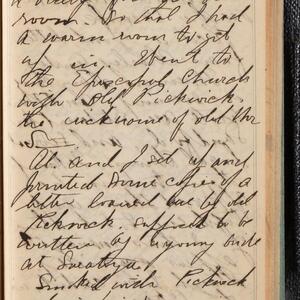 room. So that I had
a warm room to set
up in. Went to
the Episcopal Church
with Old Pickwick
the nickname of old Mr
Al. and I set up and
printed some copies of a
letter loaned me by old
Pickwick. supposed to be
written by a young bride
at Saratoga
Smoked with Pickwick